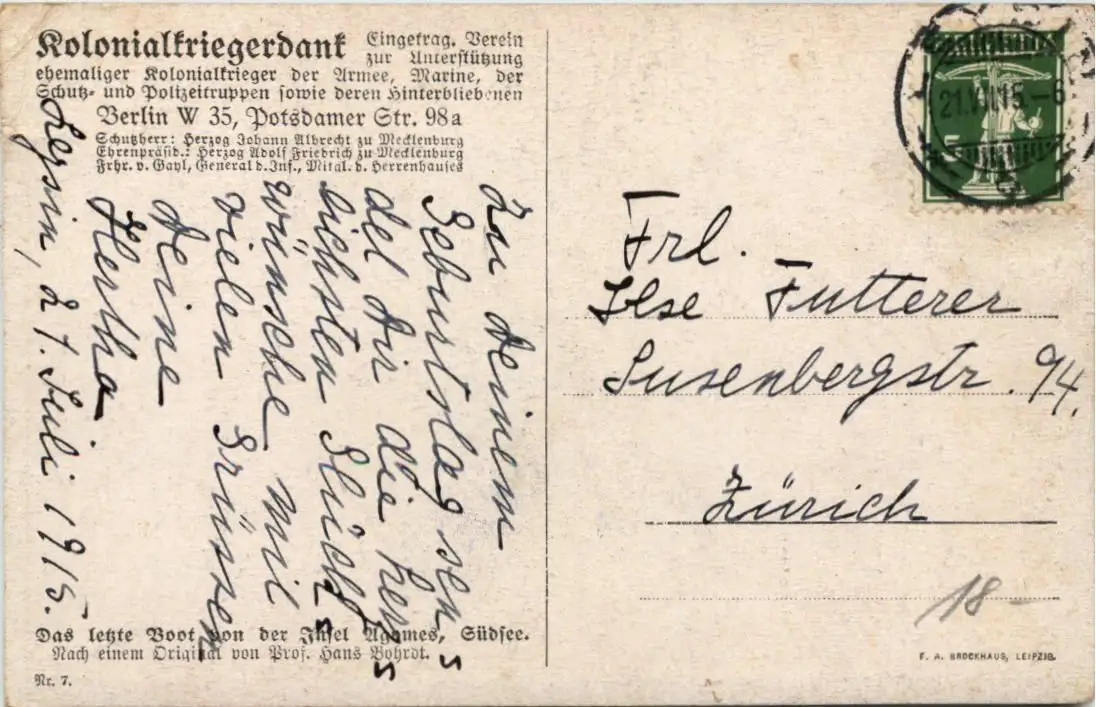 Kolonialkriegerdank Eingetrag. Verein
zur Unterstützung
ehemaliger Kolonialkrieger der Armee, Marine, der
Schutz- und Polizeitruppen sowie deren Hinterbliebenen
Berlin W 35, Potsdamer Str. 98a
Schutzherr: Herzog Johann Albrecht zu Mecklenburg
Ehrenpräsid.: Herzog Adolf Friedrich zu Mecklenburg
Frhr. v. Gayl, General d. Inf., Mitgl. d. Herrenhauses
Zu deinem
Geburtstag sen
det dir die herz
lichsten Glücks
wünsche mit
vielen Grüssen
deine
Hertha
Leysin, 21. Juli 1915.
Das letzte Boot von der Insel Agomes, Südsee.
Nach einem Original von Prof. Hans Bohrdt.
Nr. 7.
21.VII.15.-6
5
Frl.
Ilse Futterer
Susenbergstr. 94.
Zürich
18-
F. A. BROCKHAUS, LEIPZIG.